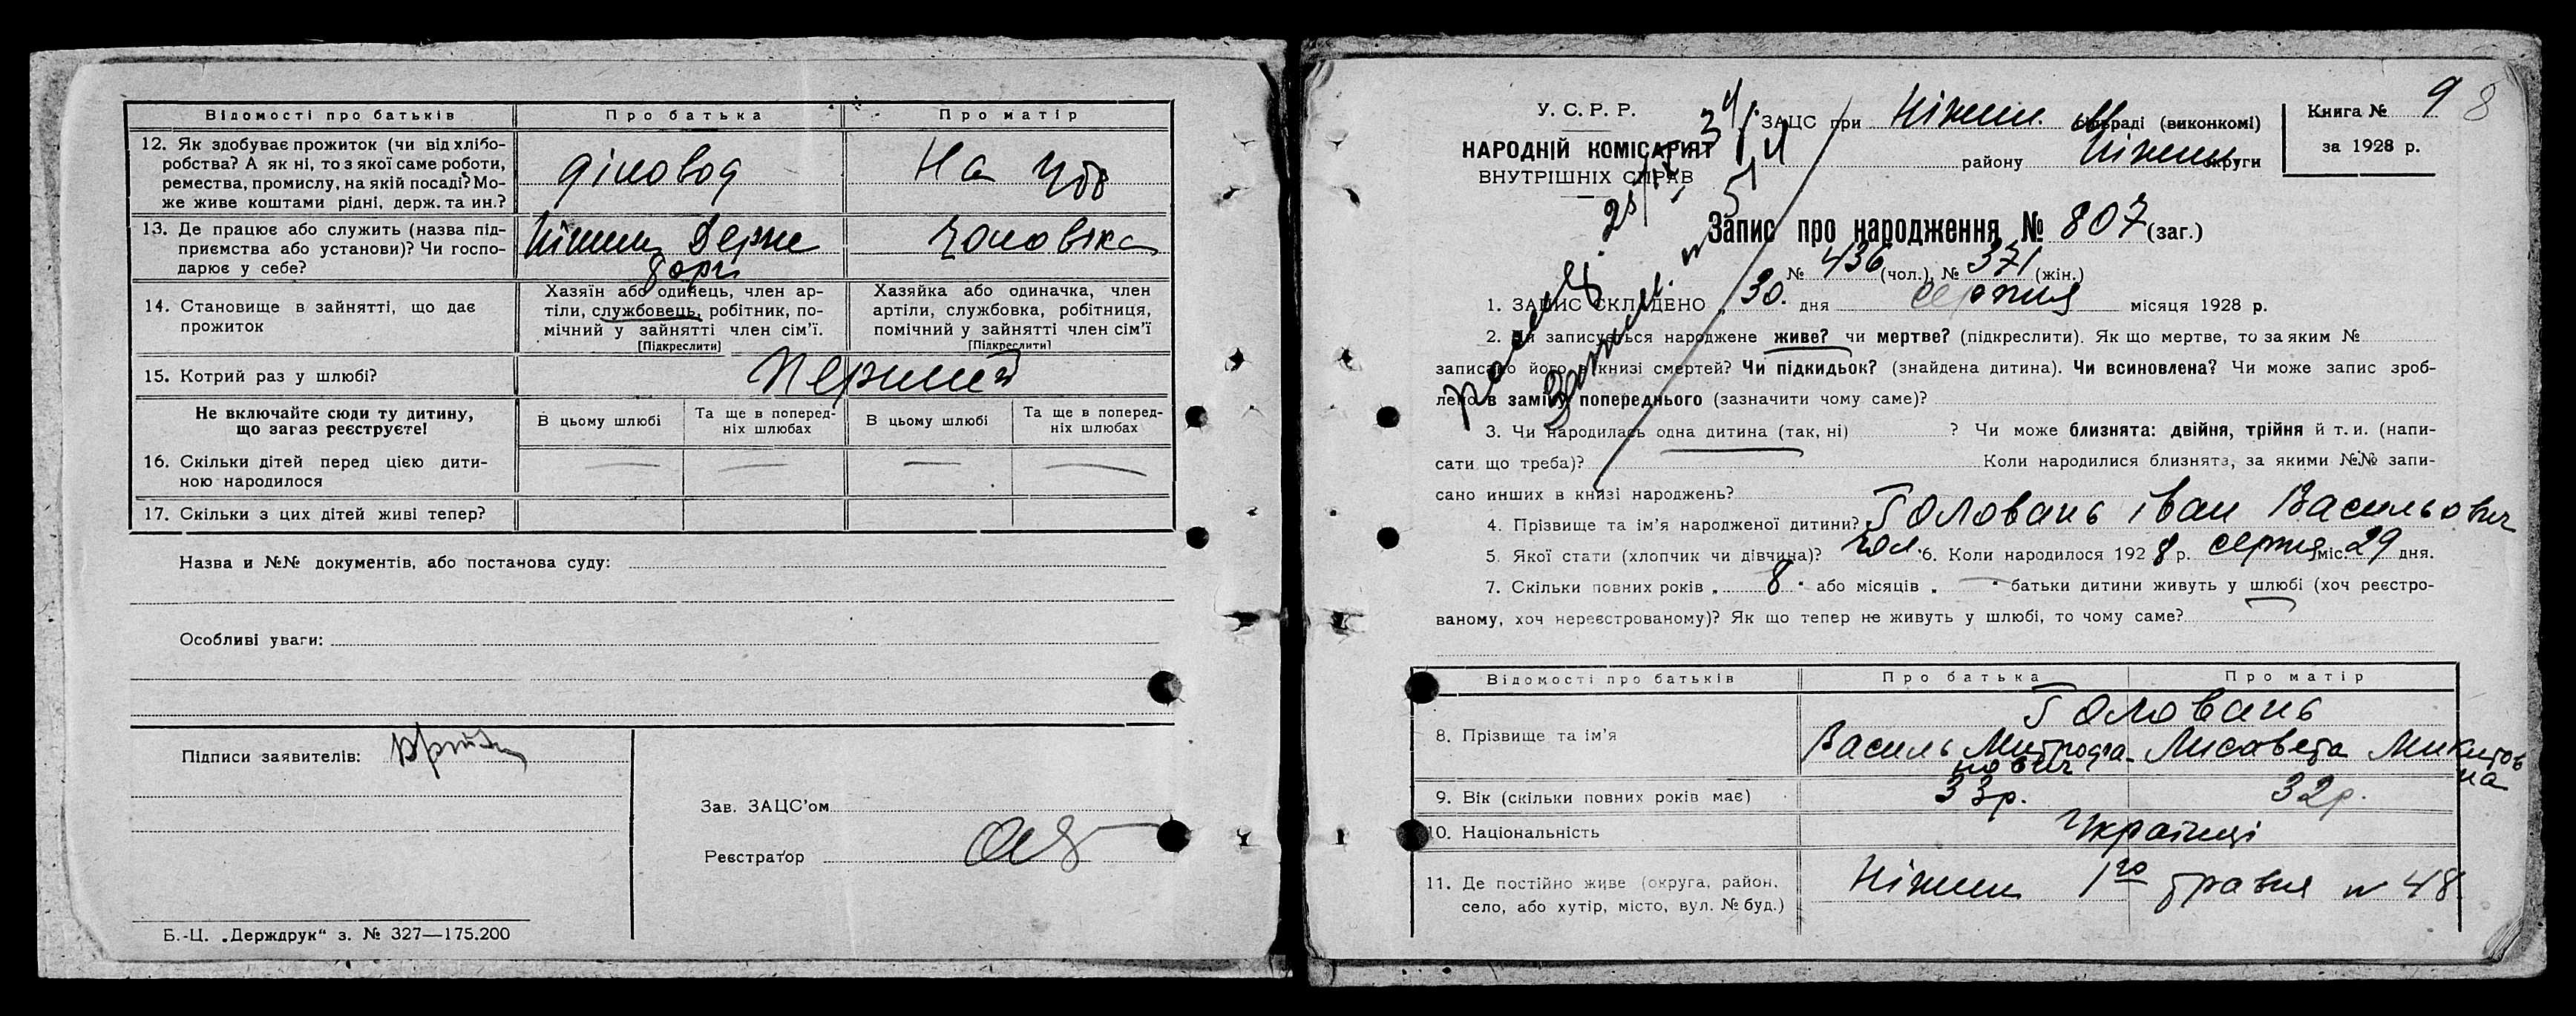 Відомості про батьків
Про батька
Про матір
12. Як здобуває прожиток (чи від хлібо-
робства? А як ні, то з якої саме роботи,
ремества, промислу, на якій посаді? Мо-
же живе коштами рідні, держ. та ин.?
діловод
На
13. Де працює або служить (назва під-
приємства або установи)? Чи госпо-
дарює у себе?
Ніжин Держ
чоловіка
14. Становище в зайнятті, що дає
прожиток
Хазяїн або одинець, член ар-
тіли, службовець, робітник, по-
мічний у зайнятті член сім'ї.
[Підкреслити]
Хазяйка або одиначка, член
артіли, службовка, робітниця,
помічний у зайнятті член сім'ї
[Підкреслити]
15. Котрий раз у шлюбі?
Перший
Не включайте сюди ту дитину,
що зараз реєструєте!
В цьому шлюбі
Та ще в поперед-
ніх шлюбах
В цьому шлюбі
Та ще в поперед-
ніх шлюбах
16. Скільки дітей перед цією дити-
ною народилося
— — — —
17. Скільки з цих дітей живі тепер?
Назва и №№ документів, або постанова суду:
Особливі уваги:
Підписи заявителів:
Зав. ЗАЦС'ом
Реєстратор
Б.-Ц. „Держдрук“ з. № 327—175.200
У. С. Р. Р.
НАРОДНІЙ КОМІСАРІЯТ
ВНУТРІШНІХ СПРАВ
ЗАЦС при Ніжин. раді (виконкомі)
району Ніжин округи
Книга № 9 8
за 1928 р.
Запис про народження № 807 (заг.)
№ 436 (чол.), № 371 (жін.)
1. ЗАПИС СКЛАДЕНО 30. дня серпня місяця 1928 р.
2. Чи записується народжене живе? чи мертве? (підкреслити). Як що мертве, то за яким №
записано його в книзі смертей? Чи підкидьок? (знайдена дитина). Чи всиновлена? Чи може запис зроб-
лено в заміну попереднього (зазначити чому саме)?
3. Чи народилась одна дитина (так, ні) ? Чи може близнята: двійня, трійня й т. и. (напи-
сати що треба)? Коли народилися близнята, за якими №№ запи-
сано инших в книзі народжень?
4. Прізвище та ім'я народженої дитини? Головань Іван Васильович
5. Якої стати (хлопчик чи дівчина)? чол. 6. Коли народилося 1928 р. серпня міс. 29 дня.
7. Скільки повних років „ 8 “ або місяців „ — “ батьки дитини живуть у шлюбі (хоч реєстро-
ваному, хоч нереєстрованому)? Як що тепер не живуть у шлюбі, то чому саме?
Відомості про батьків
Про батька
Про матір
8. Прізвище та ім'я
Головань
Василь Митрофа-
нович
Лисавета Микитов
на
9. Вік (скільки повних років має)
33р.
32р.
10. Національність
Українці
11. Де постійно живе (округа, район,
село, або хутір, місто, вул. № буд.)
Ніжин 1го травня № 48